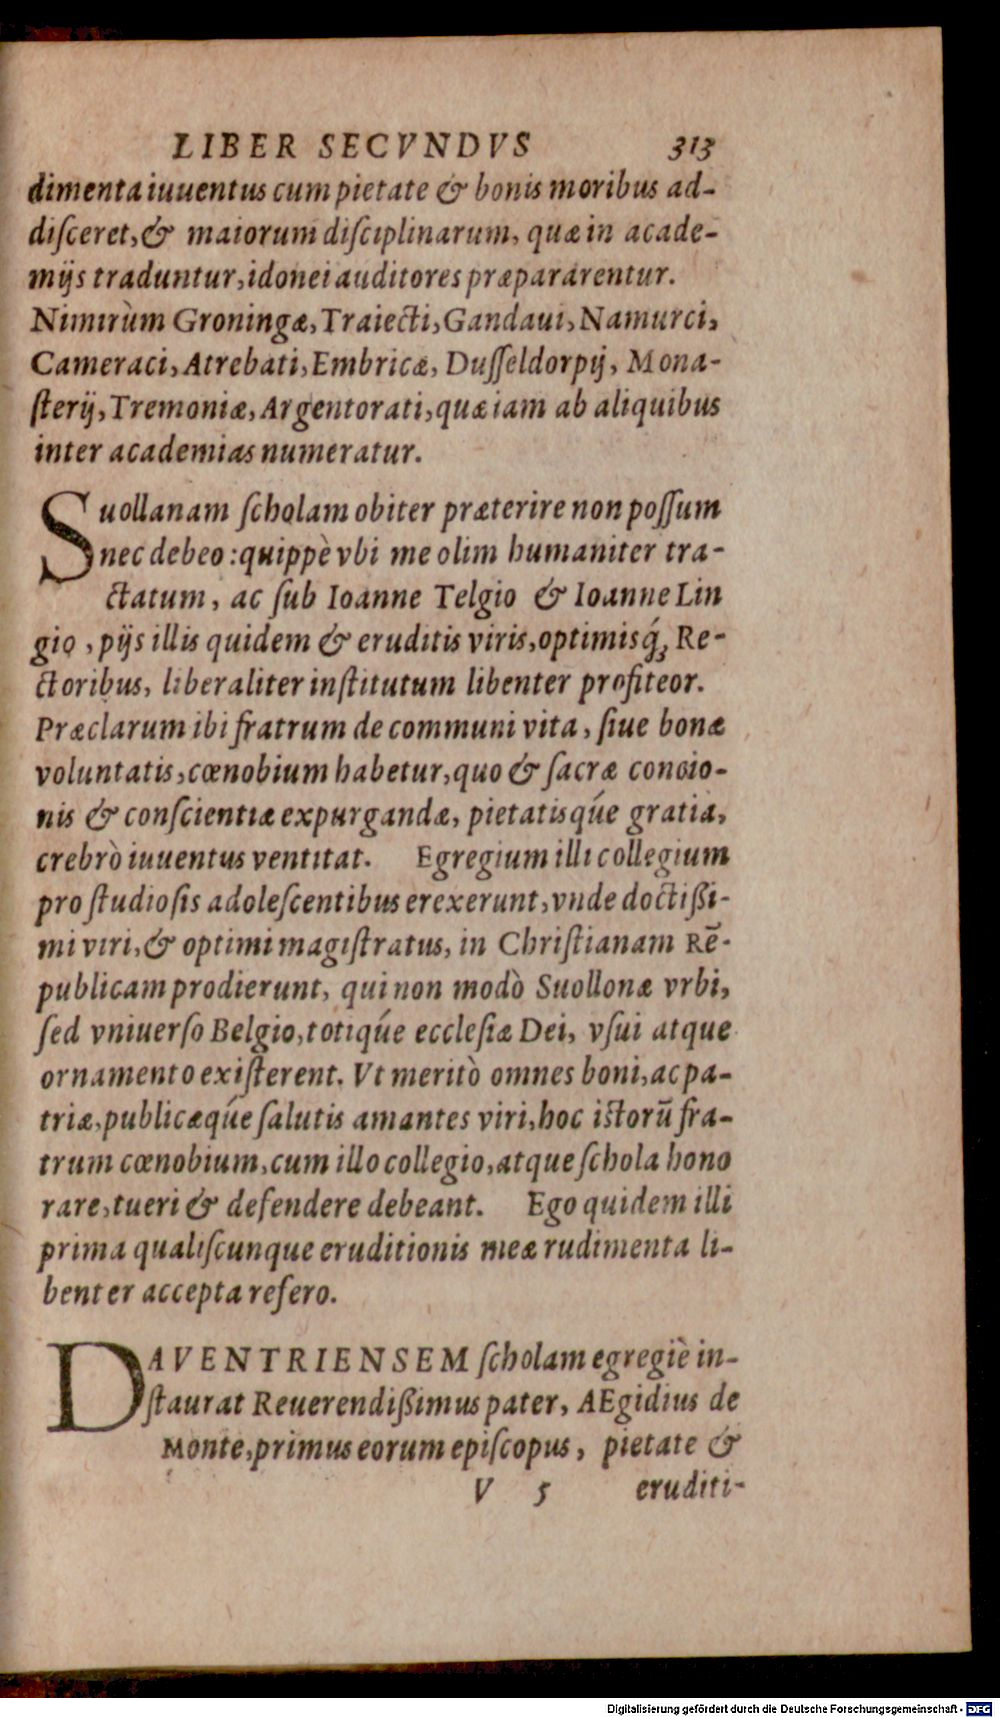 LIBER SECVNDVS 313
dimenta iuuentus cum pietate & bonis moribus ad-
diſceret, & maiorum diſciplinarum, quæ in acade-
mijs traduntur, idonei auditores præpararentur.
Nimirùm Groningæ, Traiecti, Gandaui, Namurci,
Cameraci, Atrebati, Embricæ, Duſſeldorpij, Mona-
ſterij, Tremoniæ, Argentorati, quæ iam ab aliquibus
inter academias numeratur.
Suollanam ſcholam obiter præterire non poſſum
nec debeo: quippè vbi me olim humaniter tra-
ctatum, ac ſub Ioanne Telgio & Ioanne Lin
gio, pijs illis quidem & eruditis viris, optimisq́; Re-
ctoribus, liberaliter inſtitutum libenter profiteor.
Præclarum ibi fratrum de communi vita, ſiue bonæ
voluntatis, cœnobium habetur, quo & ſacræ concio-
nis & conſcientiæ expurgandæ, pietatisq́ue gratia,
crebrò iuuentus ventitat. Egregium illi collegium
pro ſtudioſis adoleſcentibus erexerunt, vnde doctißi-
mi viri, & optimi magiſtratus, in Chriſtianam Rē-
publicam prodierunt, qui non modò Suollonæ vrbi,
ſed vniuerſo Belgio, totiq́ue eccleſiæ Dei, vſui atque
ornamento exiſterent. Vt meritò omnes boni, ac pa-
triæ, publicæq́ue ſalutis amantes viri, hoc iſtorū fra-
trum cœnobium, cum illo collegio, atque ſchola hono
rare, tueri & defendere debeant. Ego quidem illi
prima qualiſcunque eruditionis meæ rudimenta li-
benter accepta refero.
DAVENTRIENSEM ſcholam egregiè in-
ſtaurat Reuerendißimus pater, AEgidius de
Monte, primus eorum epiſcopus, pietate &
V 5 eruditi-
Digitalisierung gefördert durch die Deutsche Forschungsgemeinschaft - DFG